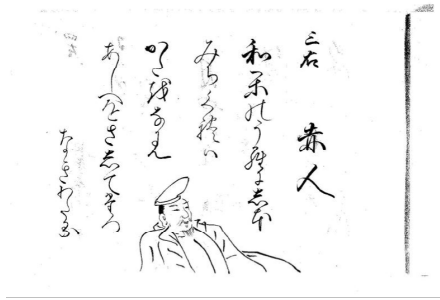 三右　赤人
和哥のうらに志本
みちくれハ
かたを奈み
あしへをさしてたつ
なきわたる